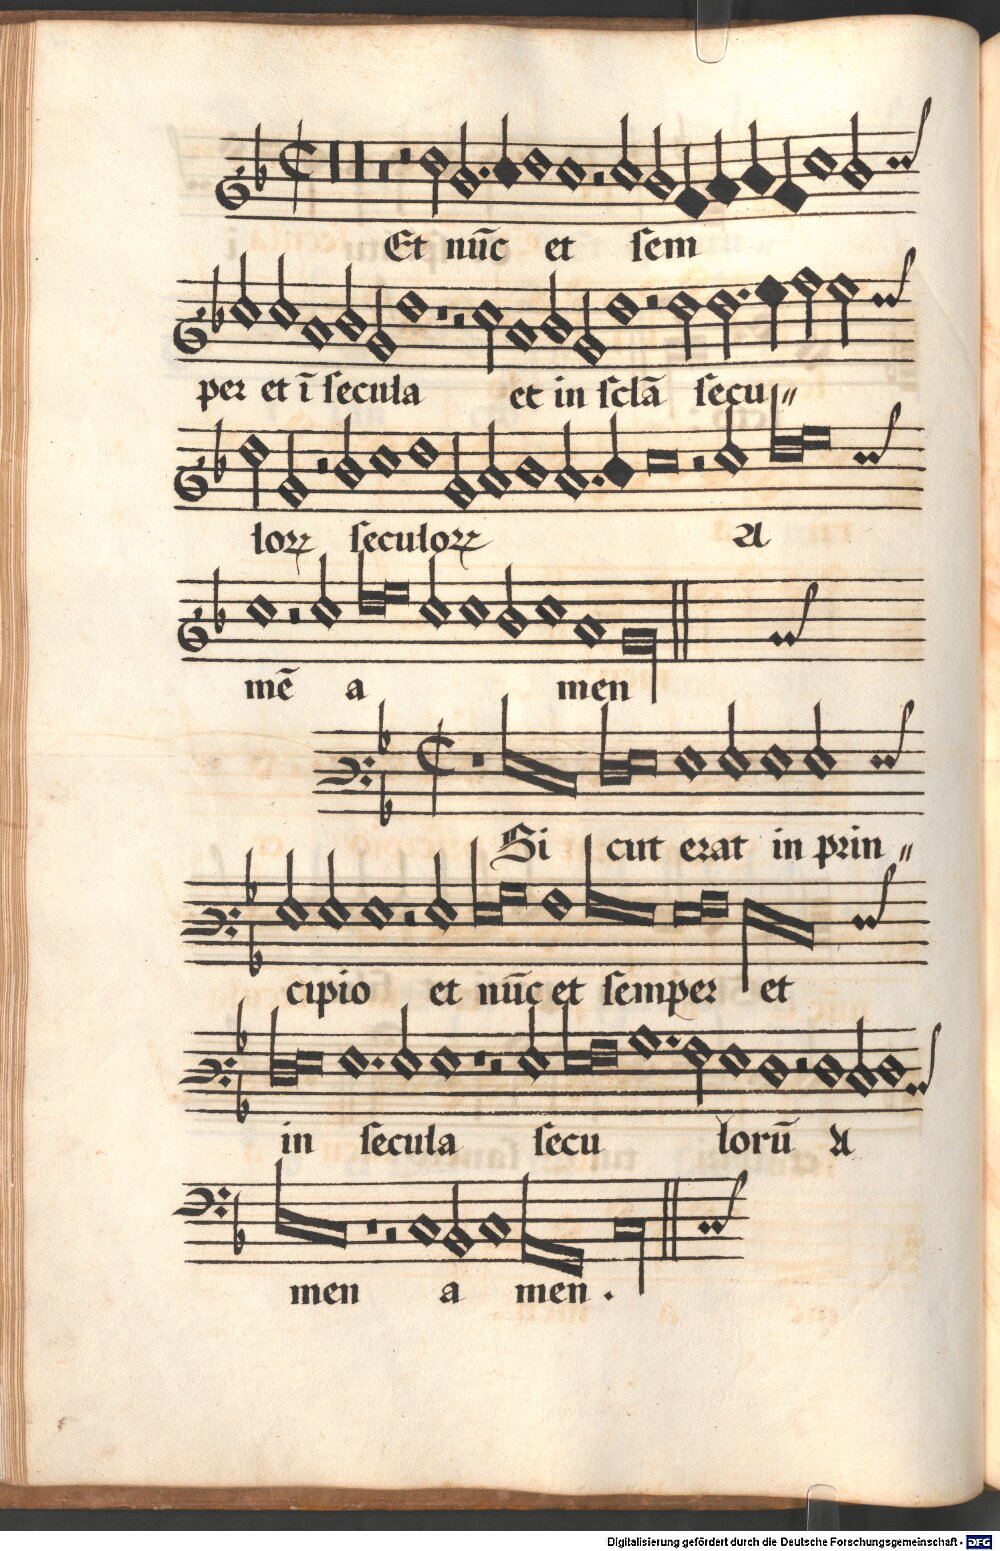 Et nūc et sem
per et ī secula et in sclā secu〃
loꝝ seculoꝝ A
mē a men
Si cut erat in prin〃
cipio et nūc et semper et
in secula secu lorū A
men a men .
Digitalisierung gefördert durch die Deutsche Forschungsgemeinschaft - DFG